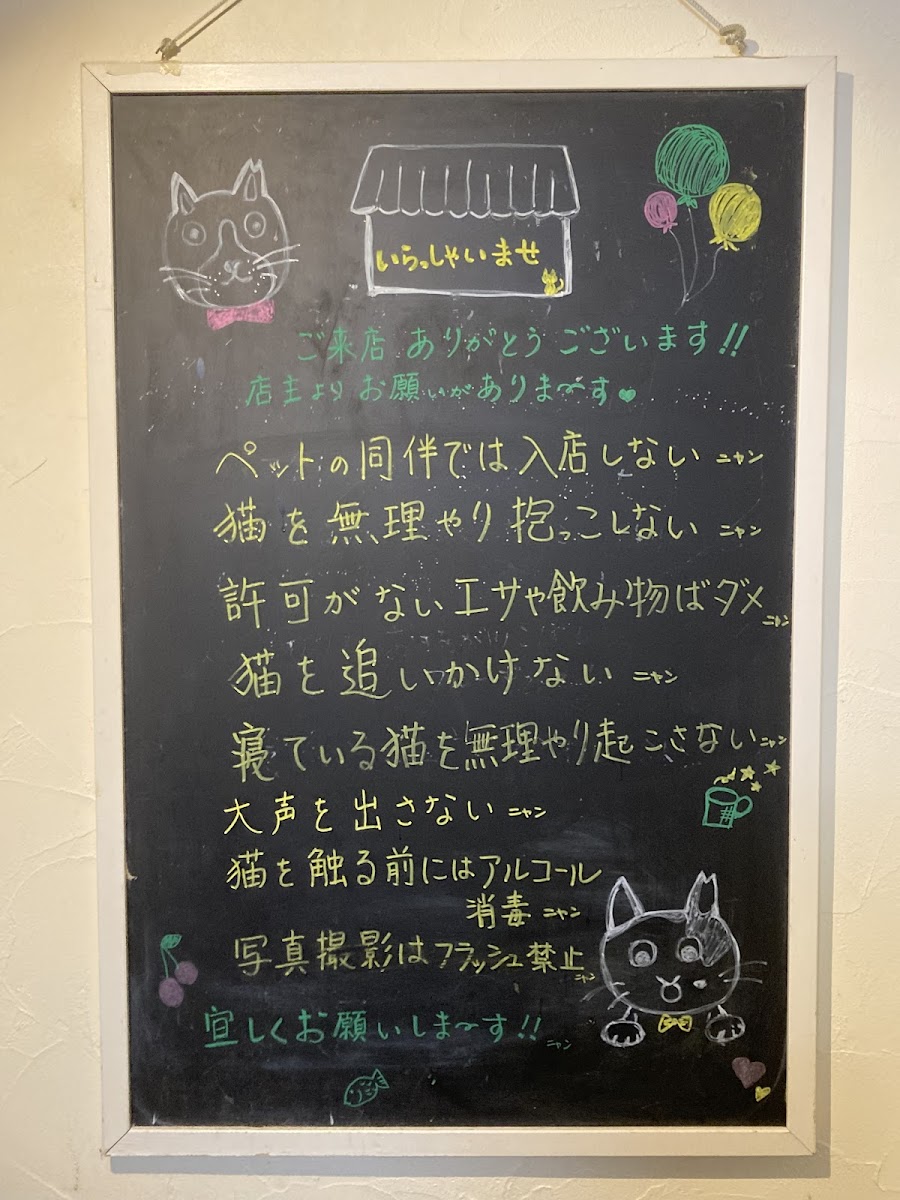 いらっしゃいませ
ご来店 ありがとう ございます!!
店主より お願いがありま〜す♥
ペットの同伴では入店しない ニャン
猫を無理やり抱っこしない ニャン
許可がないエサや飲み物ばダメ ニャン
猫を追いかけない ニャン
寝ている猫を無理やり起こさない ニャン
大声を出さない ニャン
猫を触る前にはアルコール
消毒 ニャン
写真撮影はフラッシュ禁止 ニャン
宜しくお願いしま〜す!! ニャン